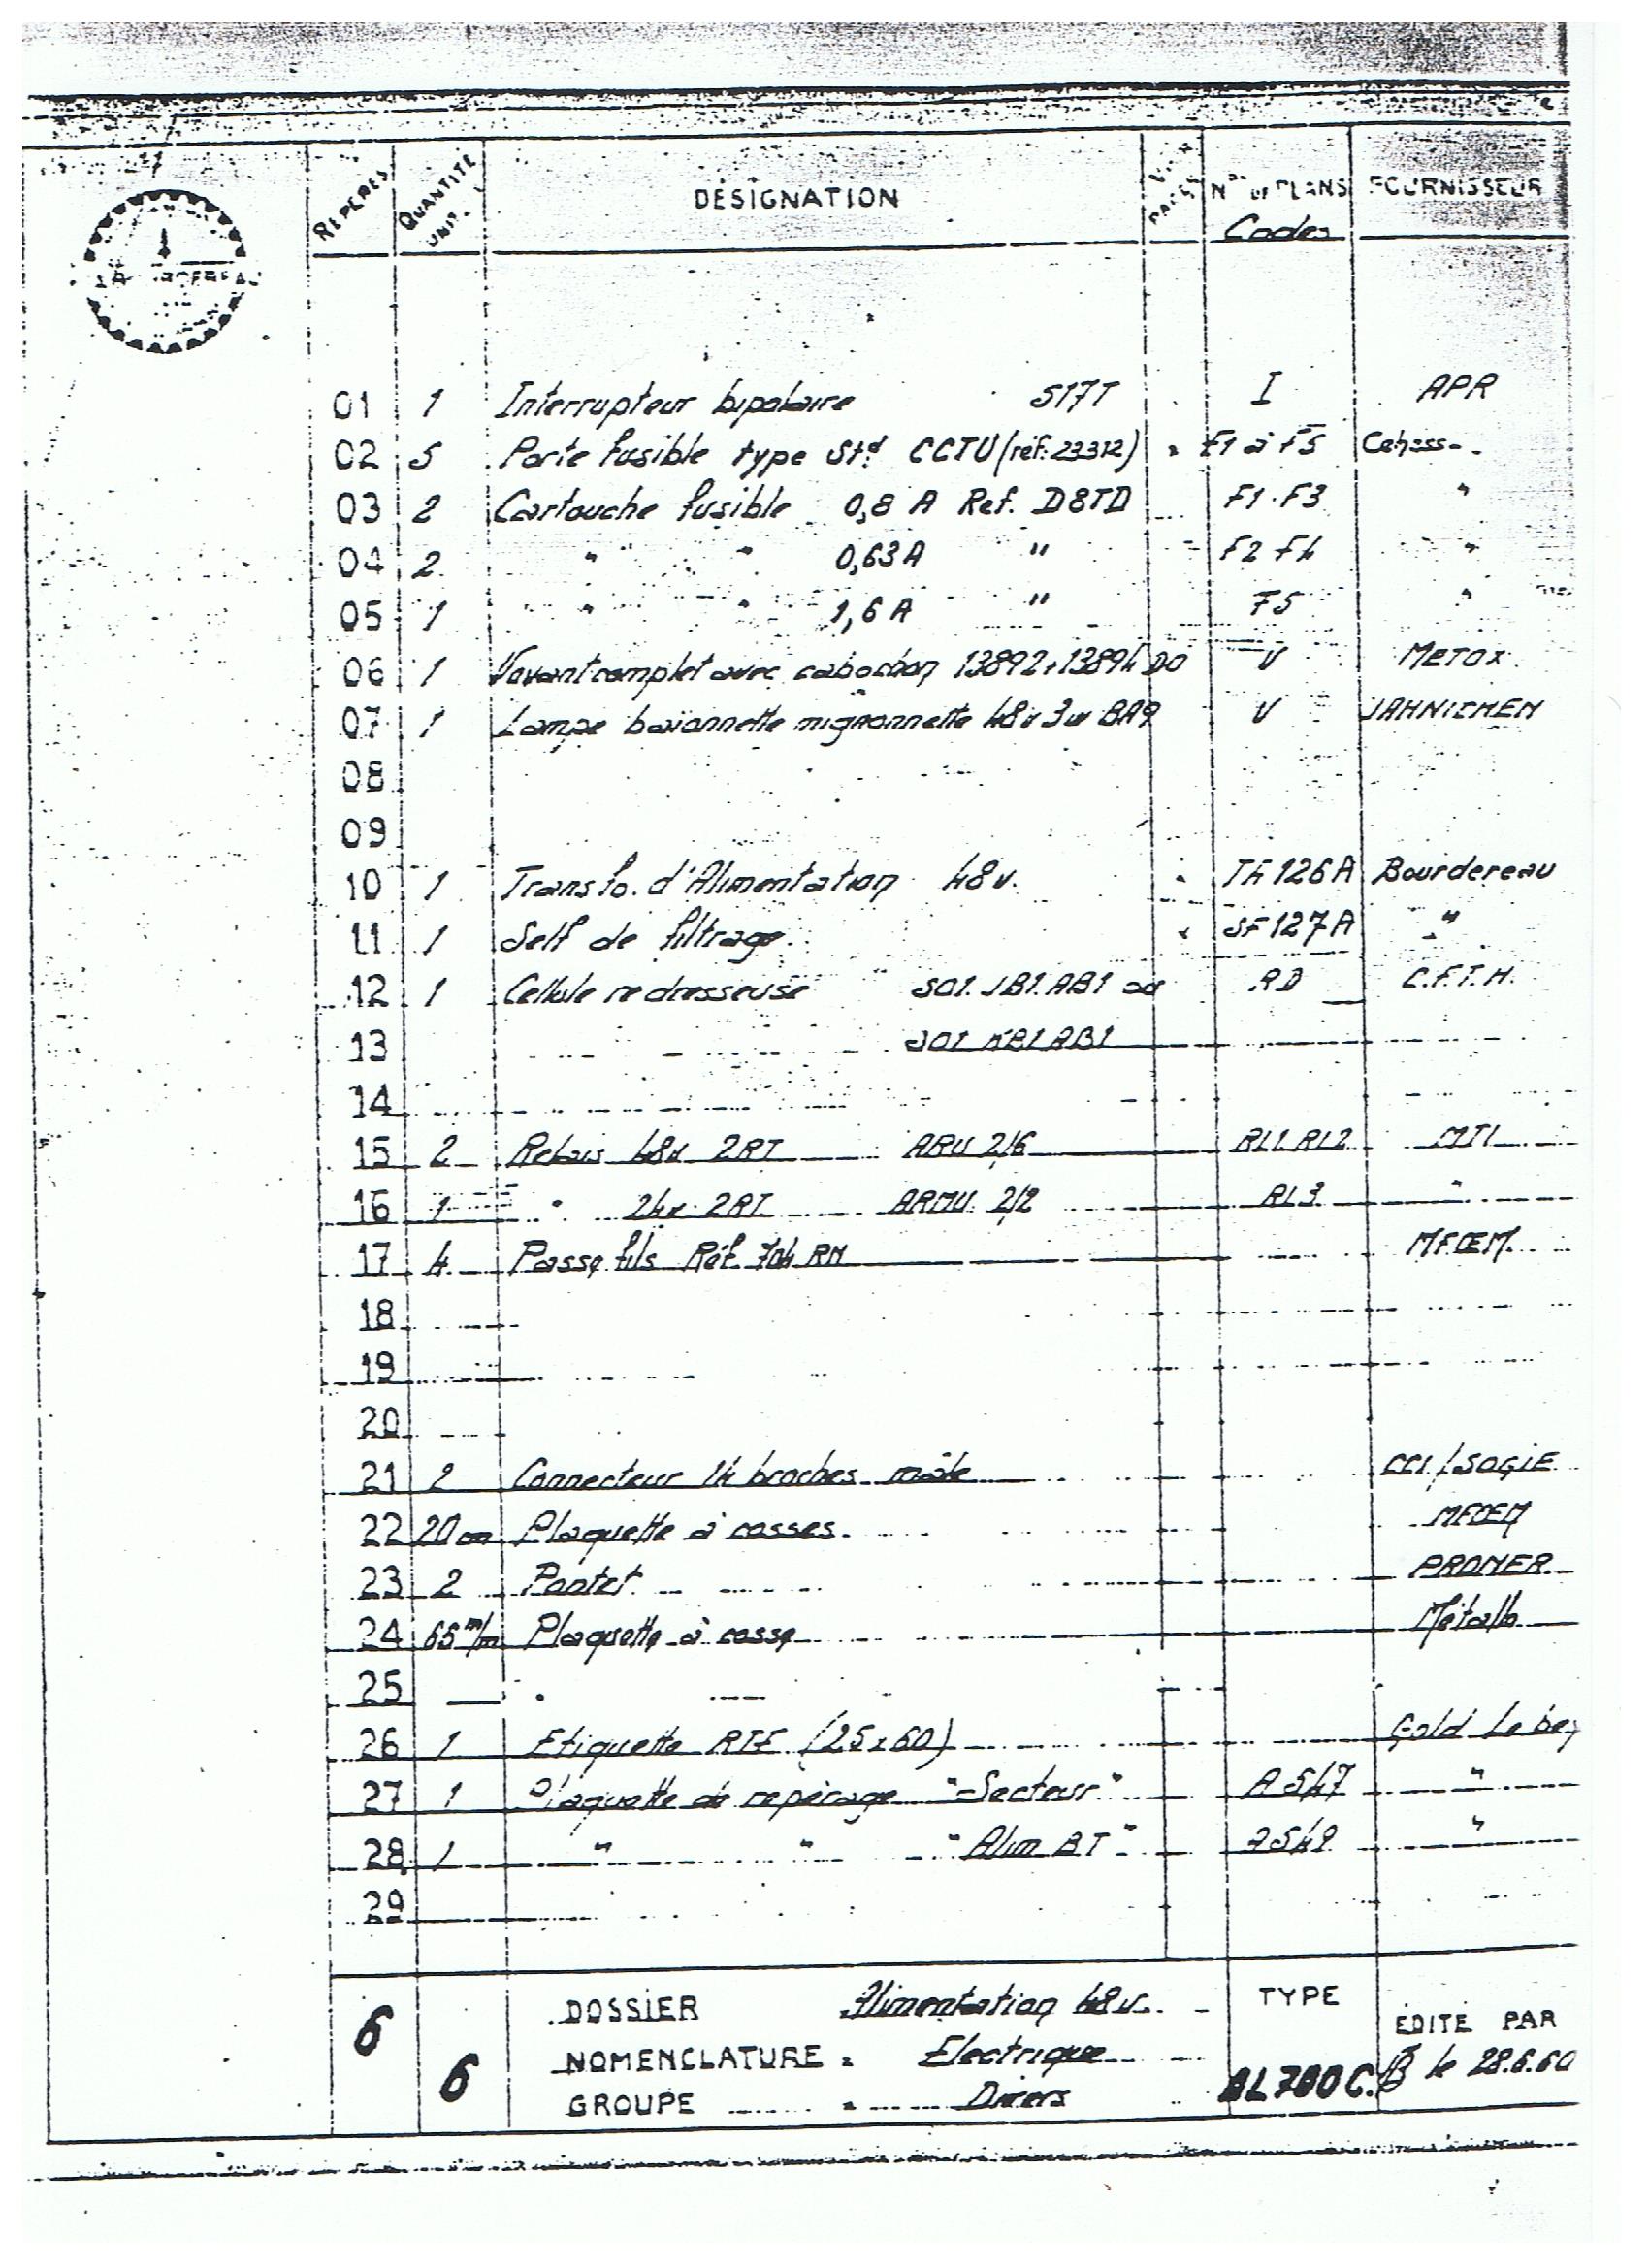 REPERES QUANTITE UNIT. DÉSIGNATION Nos DE PLANS Codes FOURNISSEUR
01 1 Interrupteur bipolaire 517T I APR
02 5 Porte fusible type Std CCTU (réf: 23312) F1 à F5 Cehess
03 2 Cartouche fusible 0,8 A Ref. D8TD F1. F3 "
04 2 " " " 0,63 A " F2 F4 "
05 1 " " 1,6 A " F5 "
06 1 Voyant complet avec cabochon 13892 + 13894 DO V METOX
07 1 Lampe baionnette mignonnette 48v 3w BA9 V JAHNICHEN
08
09
10 1 Transfo. d'Alimentation 48v. TH 126 A Bourdereau
11 1 Self de filtrage SF 127 A "
12 1 Cellule redresseuse SO1. JB1. AB1 ou RD C.F.T.H.
13 SO1 KB1 AB1
14
15 2 Relais 48v 2RT ARU 2/6 RL1 RL2 MTI
16 1 " 24v 2RT ARMU 2/2 RL3 "
17 4 Passe fils Réf. 704 RN MFŒM
18
19
20
21 2 Connecteur 14 broches mâle CCI / SOGIE
22 20 cm Plaquette à cosses MFŒM
23 2 Pontet PRONER
24 65 m/m Plaquette à cosse Métallo
25
26 1 Etiquette RTF (25 x 60) Gold Le bey
27 1 Plaquette de repérage "Secteur" A547 "
28 1 " " "Alim BT" A549 "
29
6 6
DOSSIER Alimentation 48v. TYPE
NOMENCLATURE Electrique ÉDITÉ PAR
GROUPE Divers BL 780 C. le 28.6.60